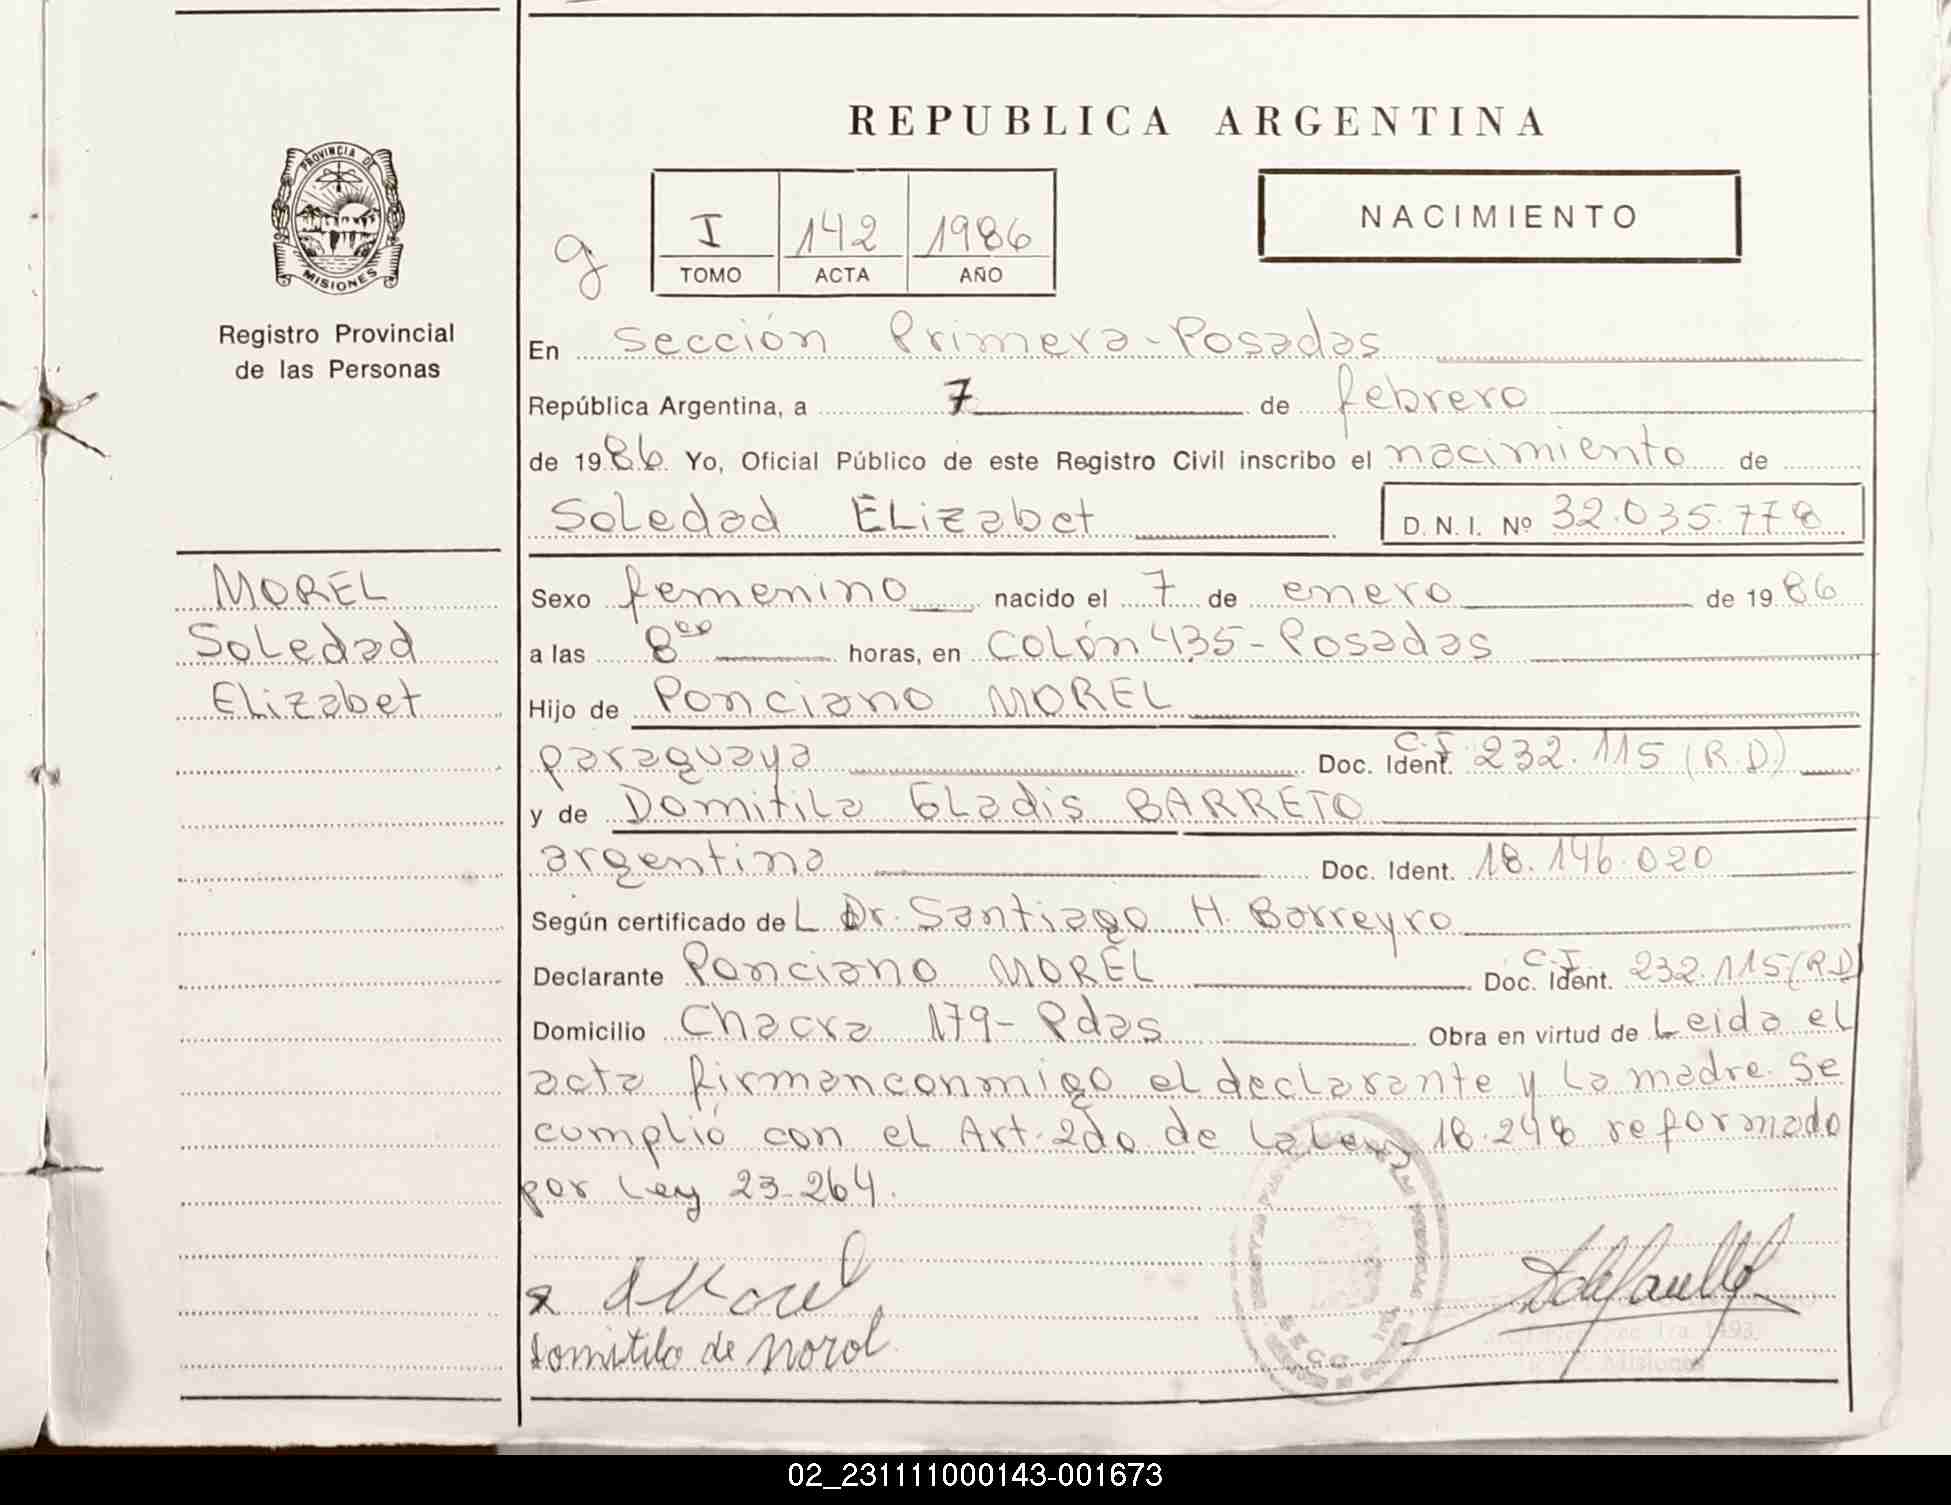 REPUBLICA ARGENTINA
PROVINCIA DE
MISIONES
Registro Provincial
de las Personas
g
I 142 1986
TOMO ACTA AÑO
NACIMIENTO
En Sección Primera-Posadas
República Argentina, a 7 de febrero
de 1986 Yo, Oficial Público de este Registro Civil inscribo el nacimiento de
Soledad Elizabet D. N. I. Nº 32.035.778
MOREL
Soledad
Elizabet
Sexo femenino nacido el 7 de enero de 1986
a las 8 00 horas, en Colón 435-Posadas
Hijo de Ponciano MOREL
paraguaya Doc. Ident. C.I. 232.115 (R.D.)
y de Domitila Gladis BARRETO
argentina Doc. Ident. 18.146.020
Según certificado de L Dr. Santiago H. Barreyro
Declarante Ponciano MOREL Doc. Ident. C.I 232.115(R.D
Domicilio Chacra 179- Pdas Obra en virtud de Leida el
acta firmanconmigo el declarante y la madre. Se
cumplió con el Art. 2do de la Ley 18.248 reformado
por Ley 23.264.
x Morel
Domitila de Morel
02_231111000143-001673